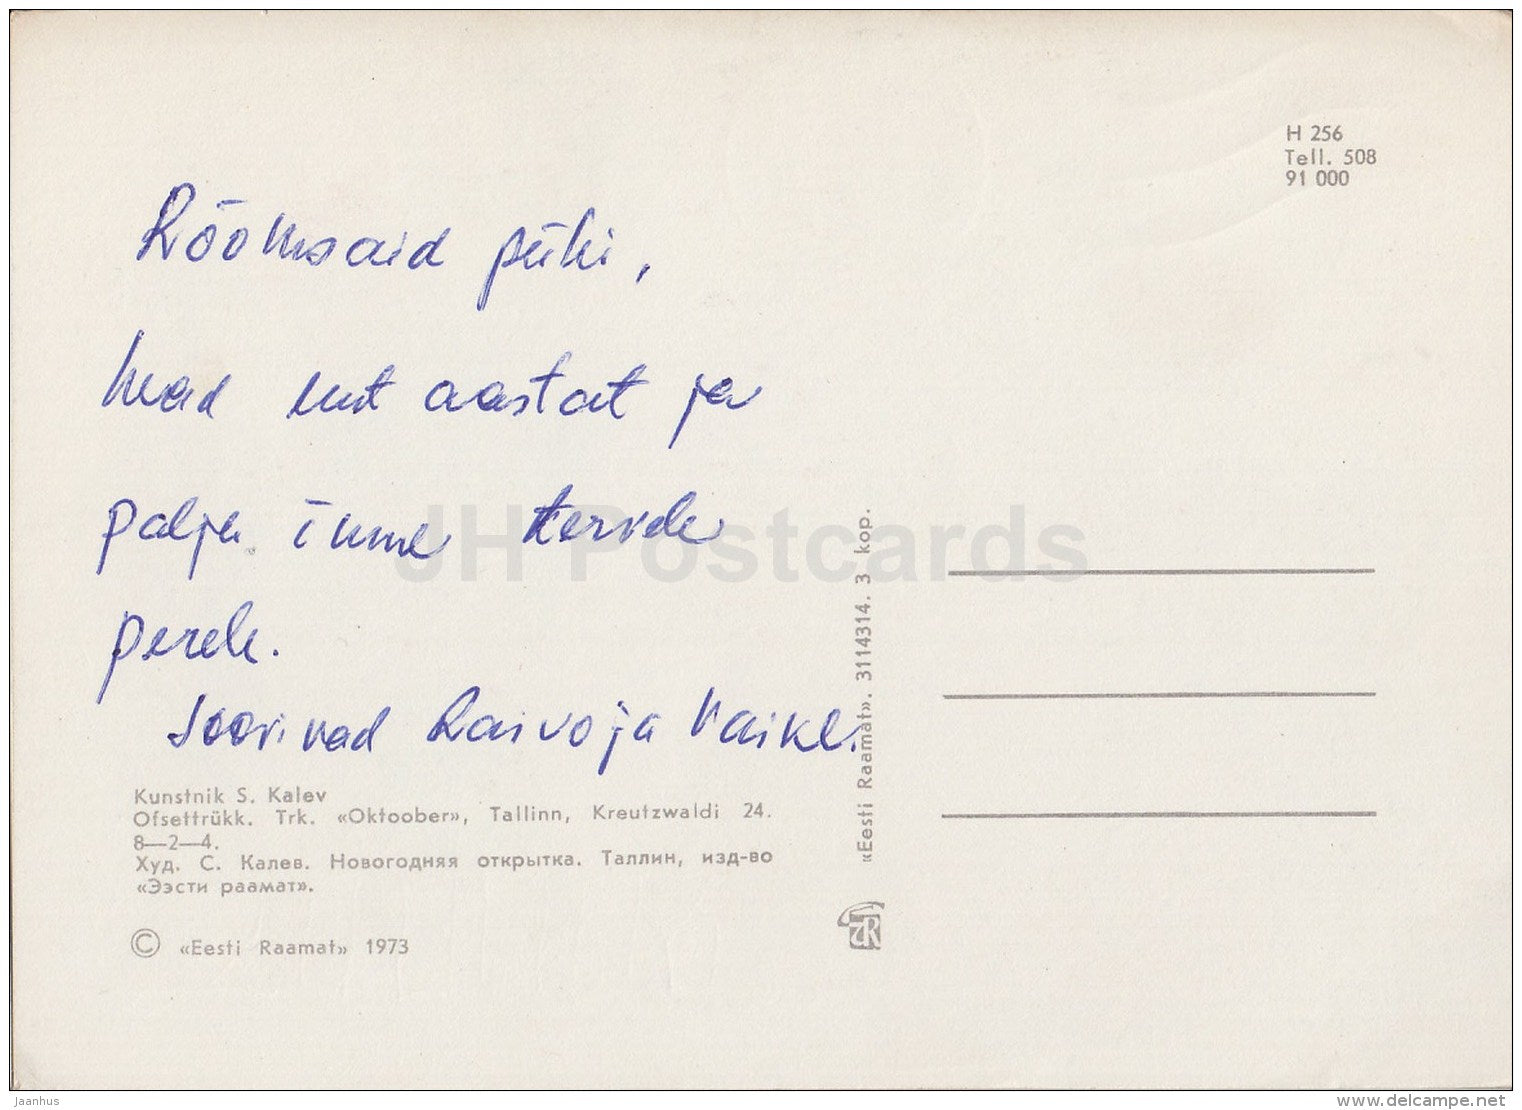 H 256
Tell. 508
91 000
Rõõmsaid pühi,
head uut aastat ja
palju õnne tervele
perele.
Soovivad Raivo ja Maike.
«Eesti Raamat». 3114314. 3 kop.
Kunstnik S. Kalev
Ofsettrükk. Trk. «Oktoober», Tallinn, Kreutzwaldi 24.
8—2—4.
Худ. С. Калев. Новогодняя открытка. Таллин, изд-во
«Ээсти раамат».
© «Eesti Raamat» 1973
JH Postcards
Jaanhus
www.delcampe.net